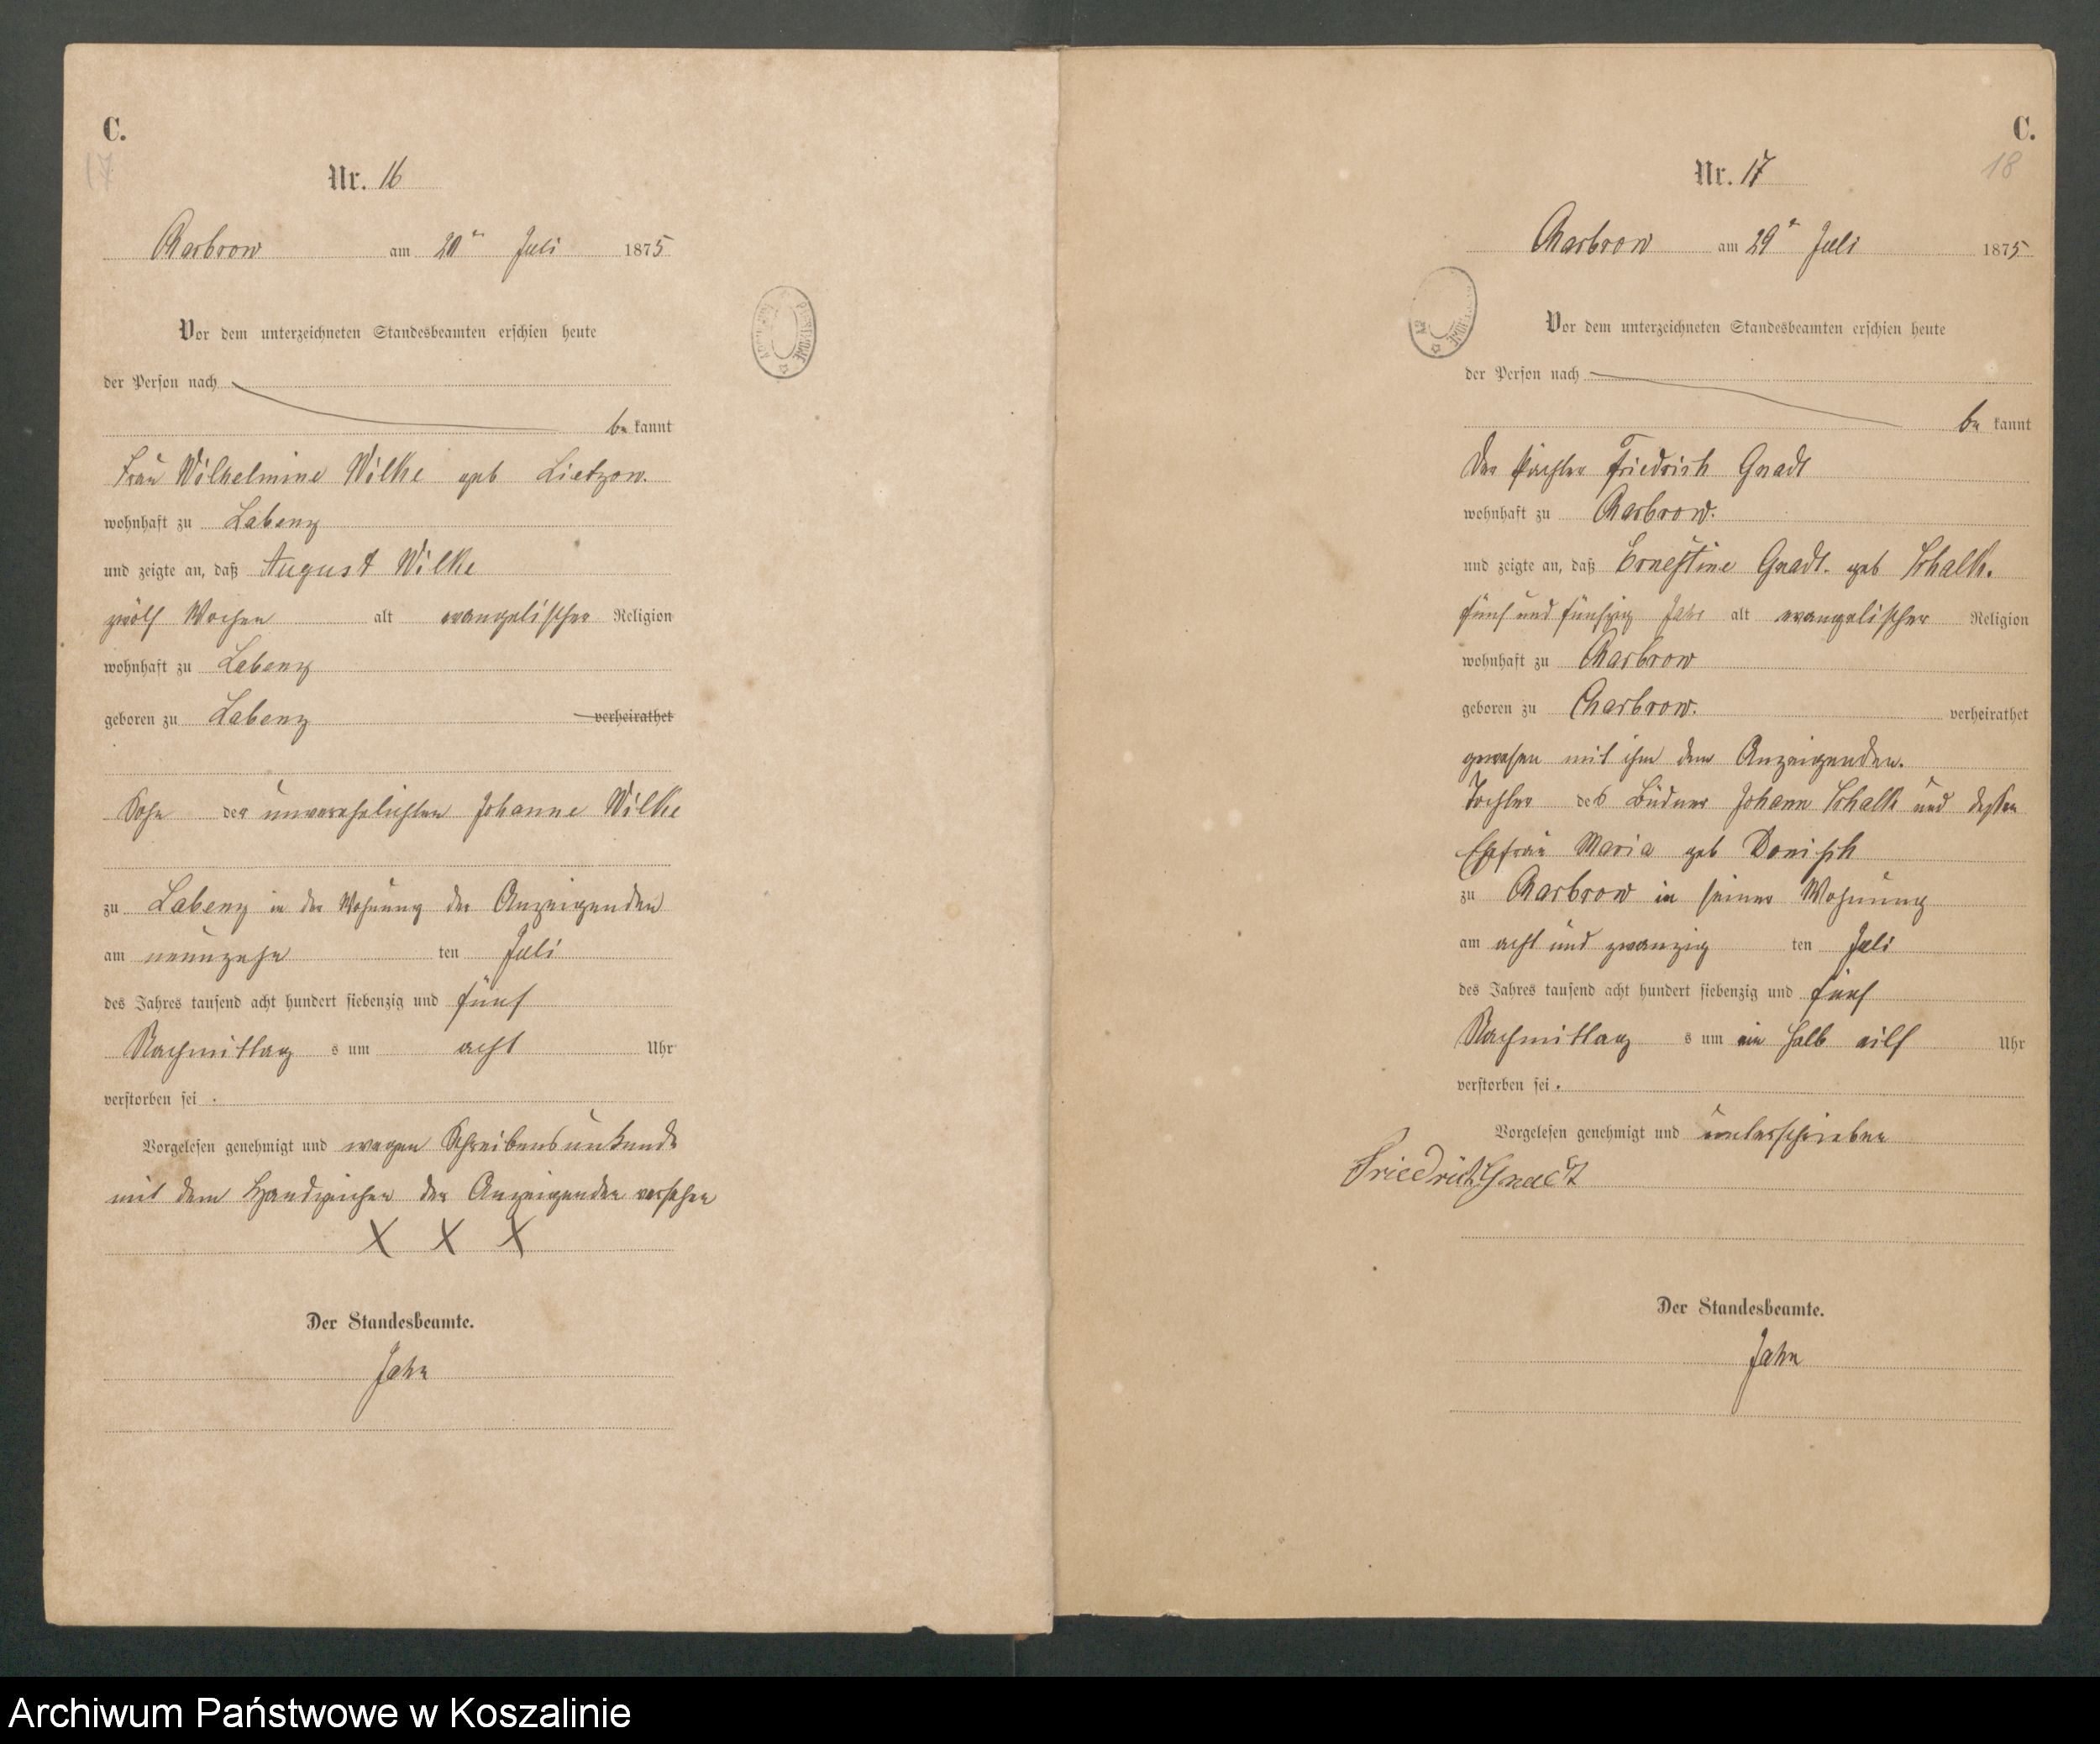 C.
17
Nr. 16
Charbrow am 20ten Juli 1875
Vor dem unterzeichneten Standesbeamten erschien heute
der Person nach
bekannt
Frau Wilhelmine Wilke geb Lietzow.
wohnhaft zu Labenz
und zeigte an, daß August Wilke
zwölf Wochen alt evangelischer Religion
wohnhaft zu Labenz
geboren zu Labenz verheirathet
Sohn der unverehelichten Johanne Wilke
zu Labenz in der Wohnung der Anzeigenden
am neunzehn ten Juli
des Jahres tausend acht hundert siebenzig und fünf
Nachmittag s um acht Uhr
verstorben sei .
Vorgelesen genehmigt und wegen Schreibensunkunde
mit dem Handzeichen der Anzeigenden versehen
X X X
Der Standesbeamte.
Jahn
C.
18
Nr. 17
Charbrow am 29ten Juli 1875
Vor dem unterzeichneten Standesbeamten erschien heute
der Person nach
bekannt
Der Pächter Friedrich Gnadt
wohnhaft zu Charbrow.
und zeigte an, daß Ernestine Gnadt. geb Schalk.
fünf und fünfzig Jahr alt evangelischer Religion
wohnhaft zu Charbrow
geboren zu Charbrow. verheirathet
gewesen mit ihm dem Anzeigenden.
Tochter des Büdner Johann Schalk und dessen
Ehefrau Maria geb
zu Charbrow in seiner Wohnung
am acht und zwanzig ten Juli
des Jahres tausend acht hundert siebenzig und fünf
Nachmittag s um ein halb eilf Uhr
verstorben sei .
Vorgelesen genehmigt und unterschrieben
Friedrich Gnadt
Der Standesbeamte.
Jahn
Archiwum Państwowe w Koszalinie